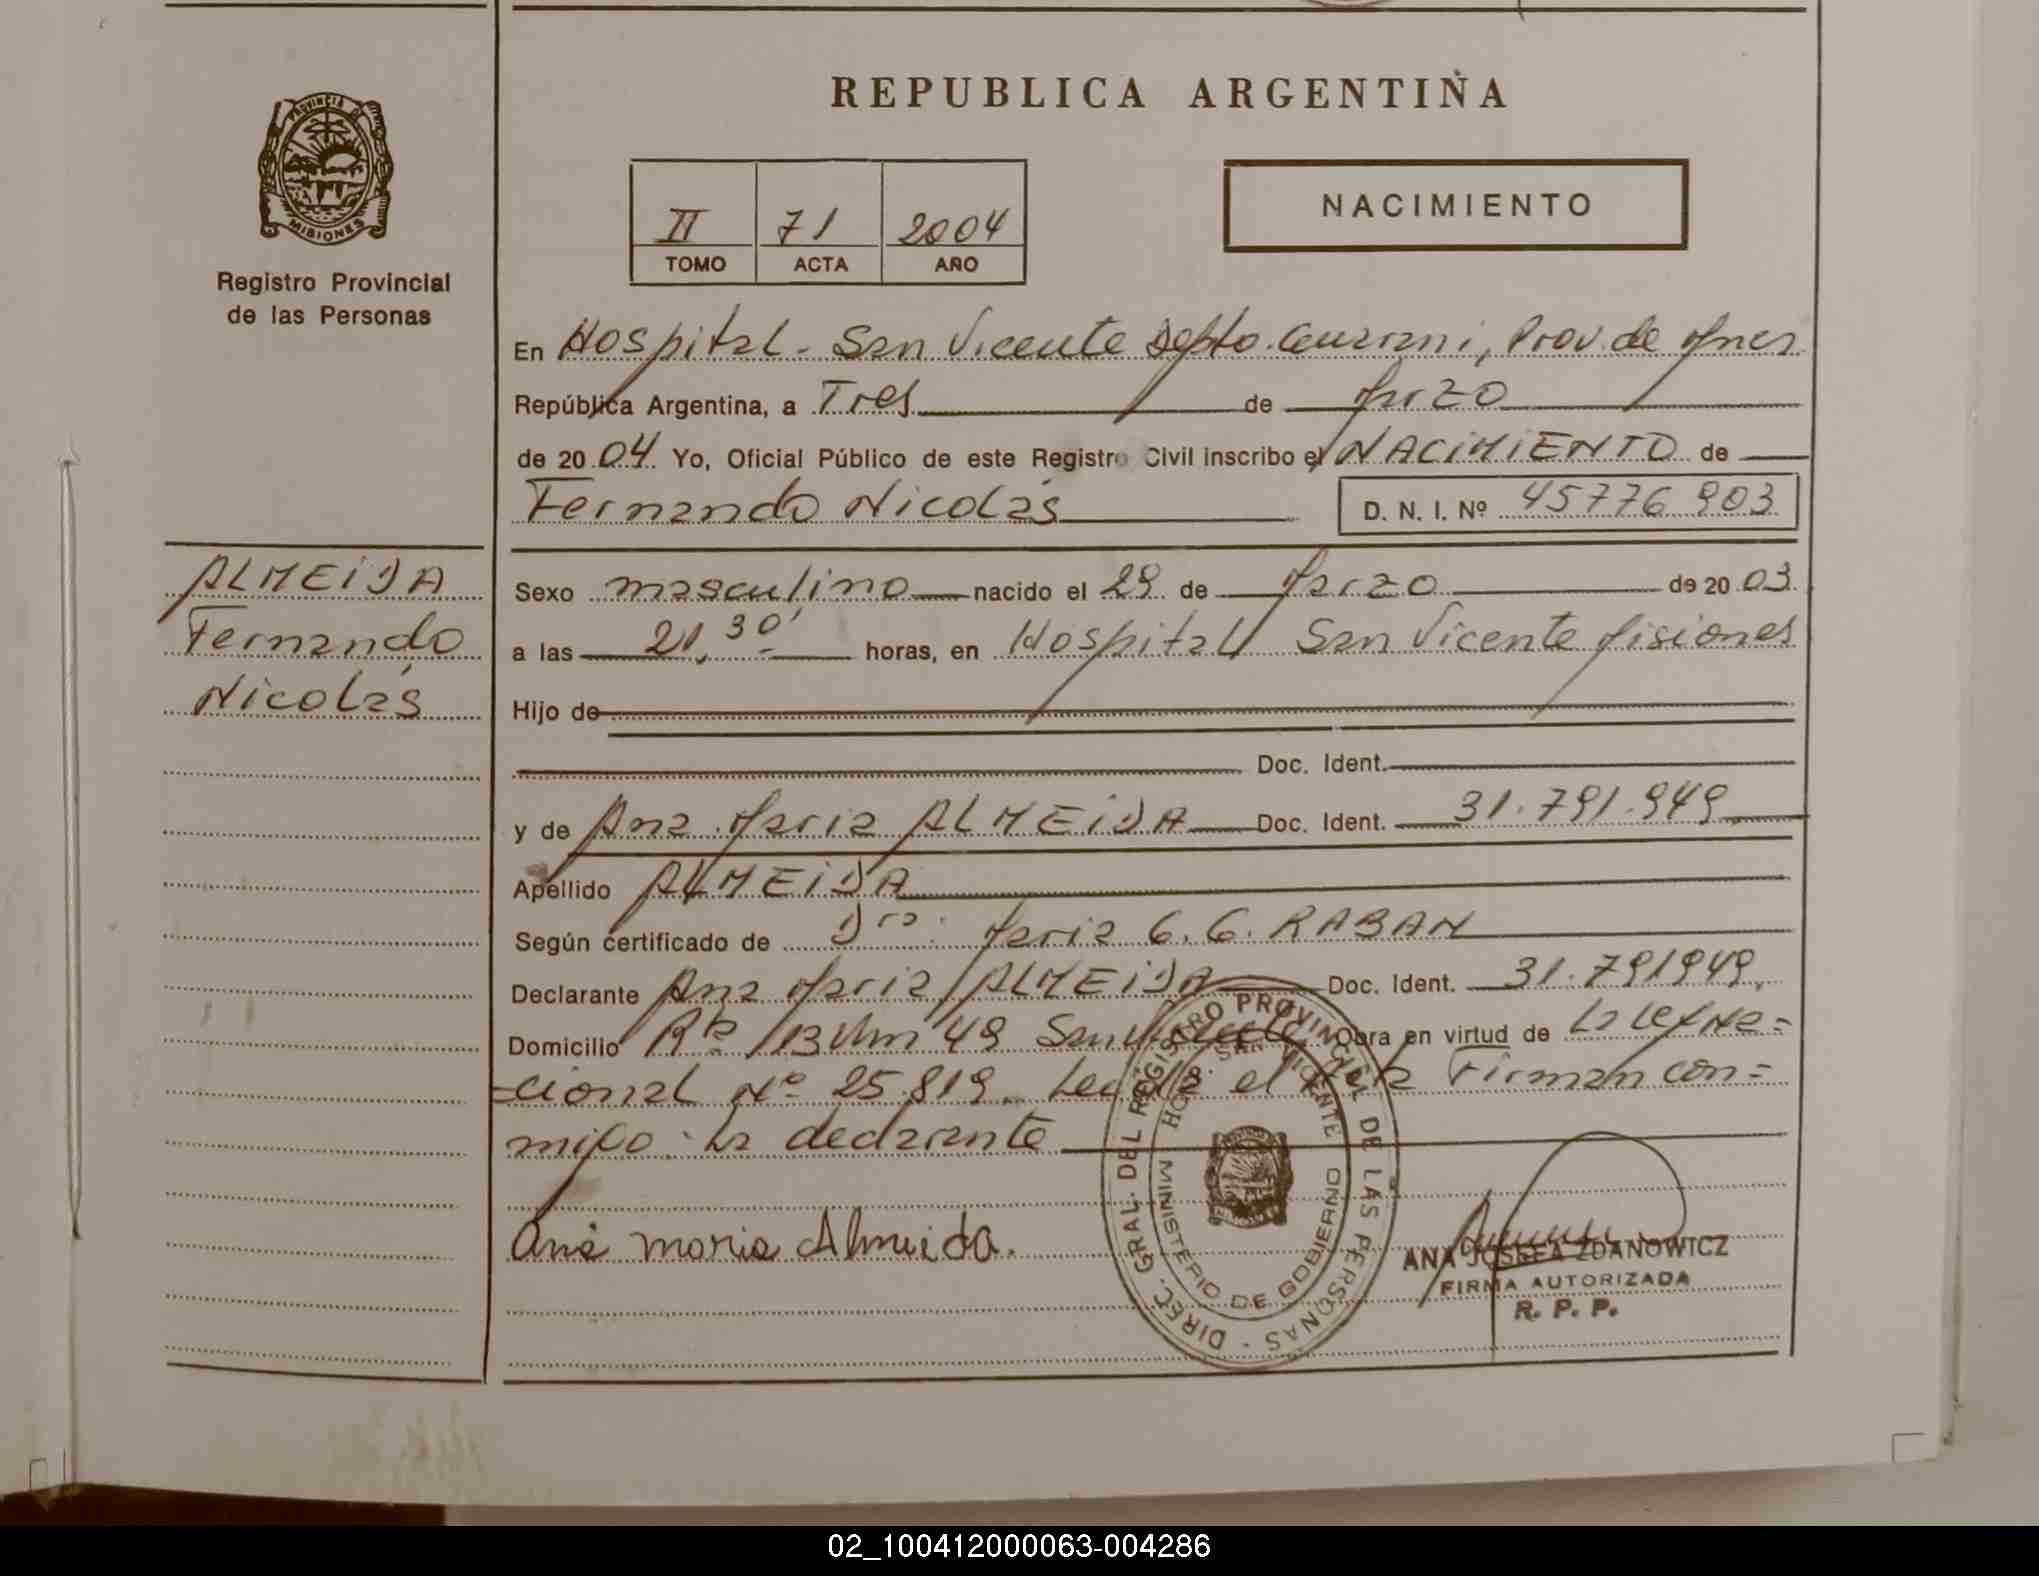 PROVINCIA DE
MISIONES
Registro Provincial
de las Personas
REPUBLICA ARGENTINA
II 71 2004
TOMO ACTA AÑO
NACIMIENTO
En Hospital - San Vicente Depto. Guarani, Prov. de Mnes
República Argentina, a Tres de Marzo
de 20 04 Yo, Oficial Público de este Registro Civil inscribo el NACIMIENTO de
Fernando Nicolás D. N. I. Nº 45776903
ALMEIDA
Fernando
Nicolás
Sexo masculino nacido el 29 de Marzo de 20 03
a las 21,30' horas, en Hospital San Vicente Misiones
Hijo de
Doc. Ident.
y de Ana Maria ALMEIDA Doc. Ident. 31.791.949
Apellido ALMEIDA
Según certificado de Dra. Maria G. G. RABAN
Declarante Ana Maria ALMEIDA Doc. Ident. 31.791949
Domicilio Rta 13 Km 49 San Vicente Obra en virtud de La Ley Na=
=cional Nº 25.819. Leída el Acta Firman con=
migo: La declarante
Ana maria Almeida.
DIREC. GRAL. DEL REGISTRO PROVINCIAL DE LAS PERSONAS -
HOSP. SAN VICENTE
MINISTERIO DE GOBIERNO
ANA JOSEFA ZDANOWICZ
FIRMA AUTORIZADA
R. P. P.
02_100412000063-004286